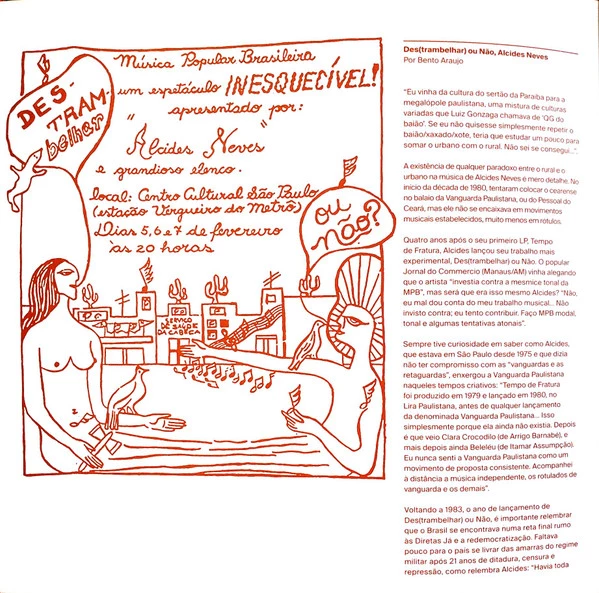 Música Popular Brasileira
um espetáculo INESQUECÍVEL!
apresentado por:
"Alcides Neves"
e grandioso elenco.
local: Centro Cultural São Paulo
(estação Vergueiro do Metrô)
Dias 5, 6 e 7 de fevereiro
às 20 horas
DES-
TRAM-
belhar
ou
não?
SERVIÇO
DE SAÚDE
DA CABEÇA
Des(trambelhar) ou Não, Alcides Neves
Por Bento Araujo
"Eu vinha da cultura do sertão da Paraíba para a
megalópole paulistana, uma mistura de culturas
variadas que Luiz Gonzaga chamava de 'QG do
baião'. Se eu não quisesse simplesmente repetir o
baião/xaxado/xote, teria que estudar um pouco para
somar o urbano com o rural. Não sei se consegui...".
A existência de qualquer paradoxo entre o rural e o
urbano na música de Alcides Neves é mero detalhe. No
início da década de 1980, tentaram colocar o cearense
no balaio da Vanguarda Paulistana, ou do Pessoal do
Ceará, mas ele não se encaixava em movimentos
musicais estabelecidos, muito menos em rótulos.
Quatro anos após o seu primeiro LP, Tempo
de Fratura, Alcides lançou seu trabalho mais
experimental, Des(trambelhar) ou Não. O popular
Jornal do Commercio (Manaus/AM) vinha alegando
que o artista "investia contra a mesmice tonal da
MPB", mas será que era isso mesmo Alcides? "Não,
eu mal dou conta do meu trabalho musical... Não
invisto contra; eu tento contribuir. Faço MPB modal,
tonal e algumas tentativas atonais".
Sempre tive curiosidade em saber como Alcides,
que estava em São Paulo desde 1975 e que dizia
não ter compromisso com as "vanguardas e as
retaguardas", enxergou a Vanguarda Paulistana
naqueles tempos criativos: "Tempo de Fratura
foi produzido em 1979 e lançado em 1980, no
Lira Paulistana, antes de qualquer lançamento
da denominada Vanguarda Paulistana... Isso
simplesmente porque ela ainda não existia. Depois
é que veio Clara Crocodilo (de Arrigo Barnabé), e
mais depois ainda Beleléu (de Itamar Assumpção).
Eu nunca senti a Vanguarda Paulistana como um
movimento de proposta consistente. Acompanhei
à distância a música independente, os rotulados de
vanguarda e os demais".
Voltando a 1983, o ano de lançamento de
Des(trambelhar) ou Não, é importante relembrar
que o Brasil se encontrava numa reta final rumo
às Diretas Já e a redemocratização. Faltava
pouco para o país se livrar das amarras do regime
militar após 21 anos de ditadura, censura e
repressão, como relembra Alcides: "Havia toda